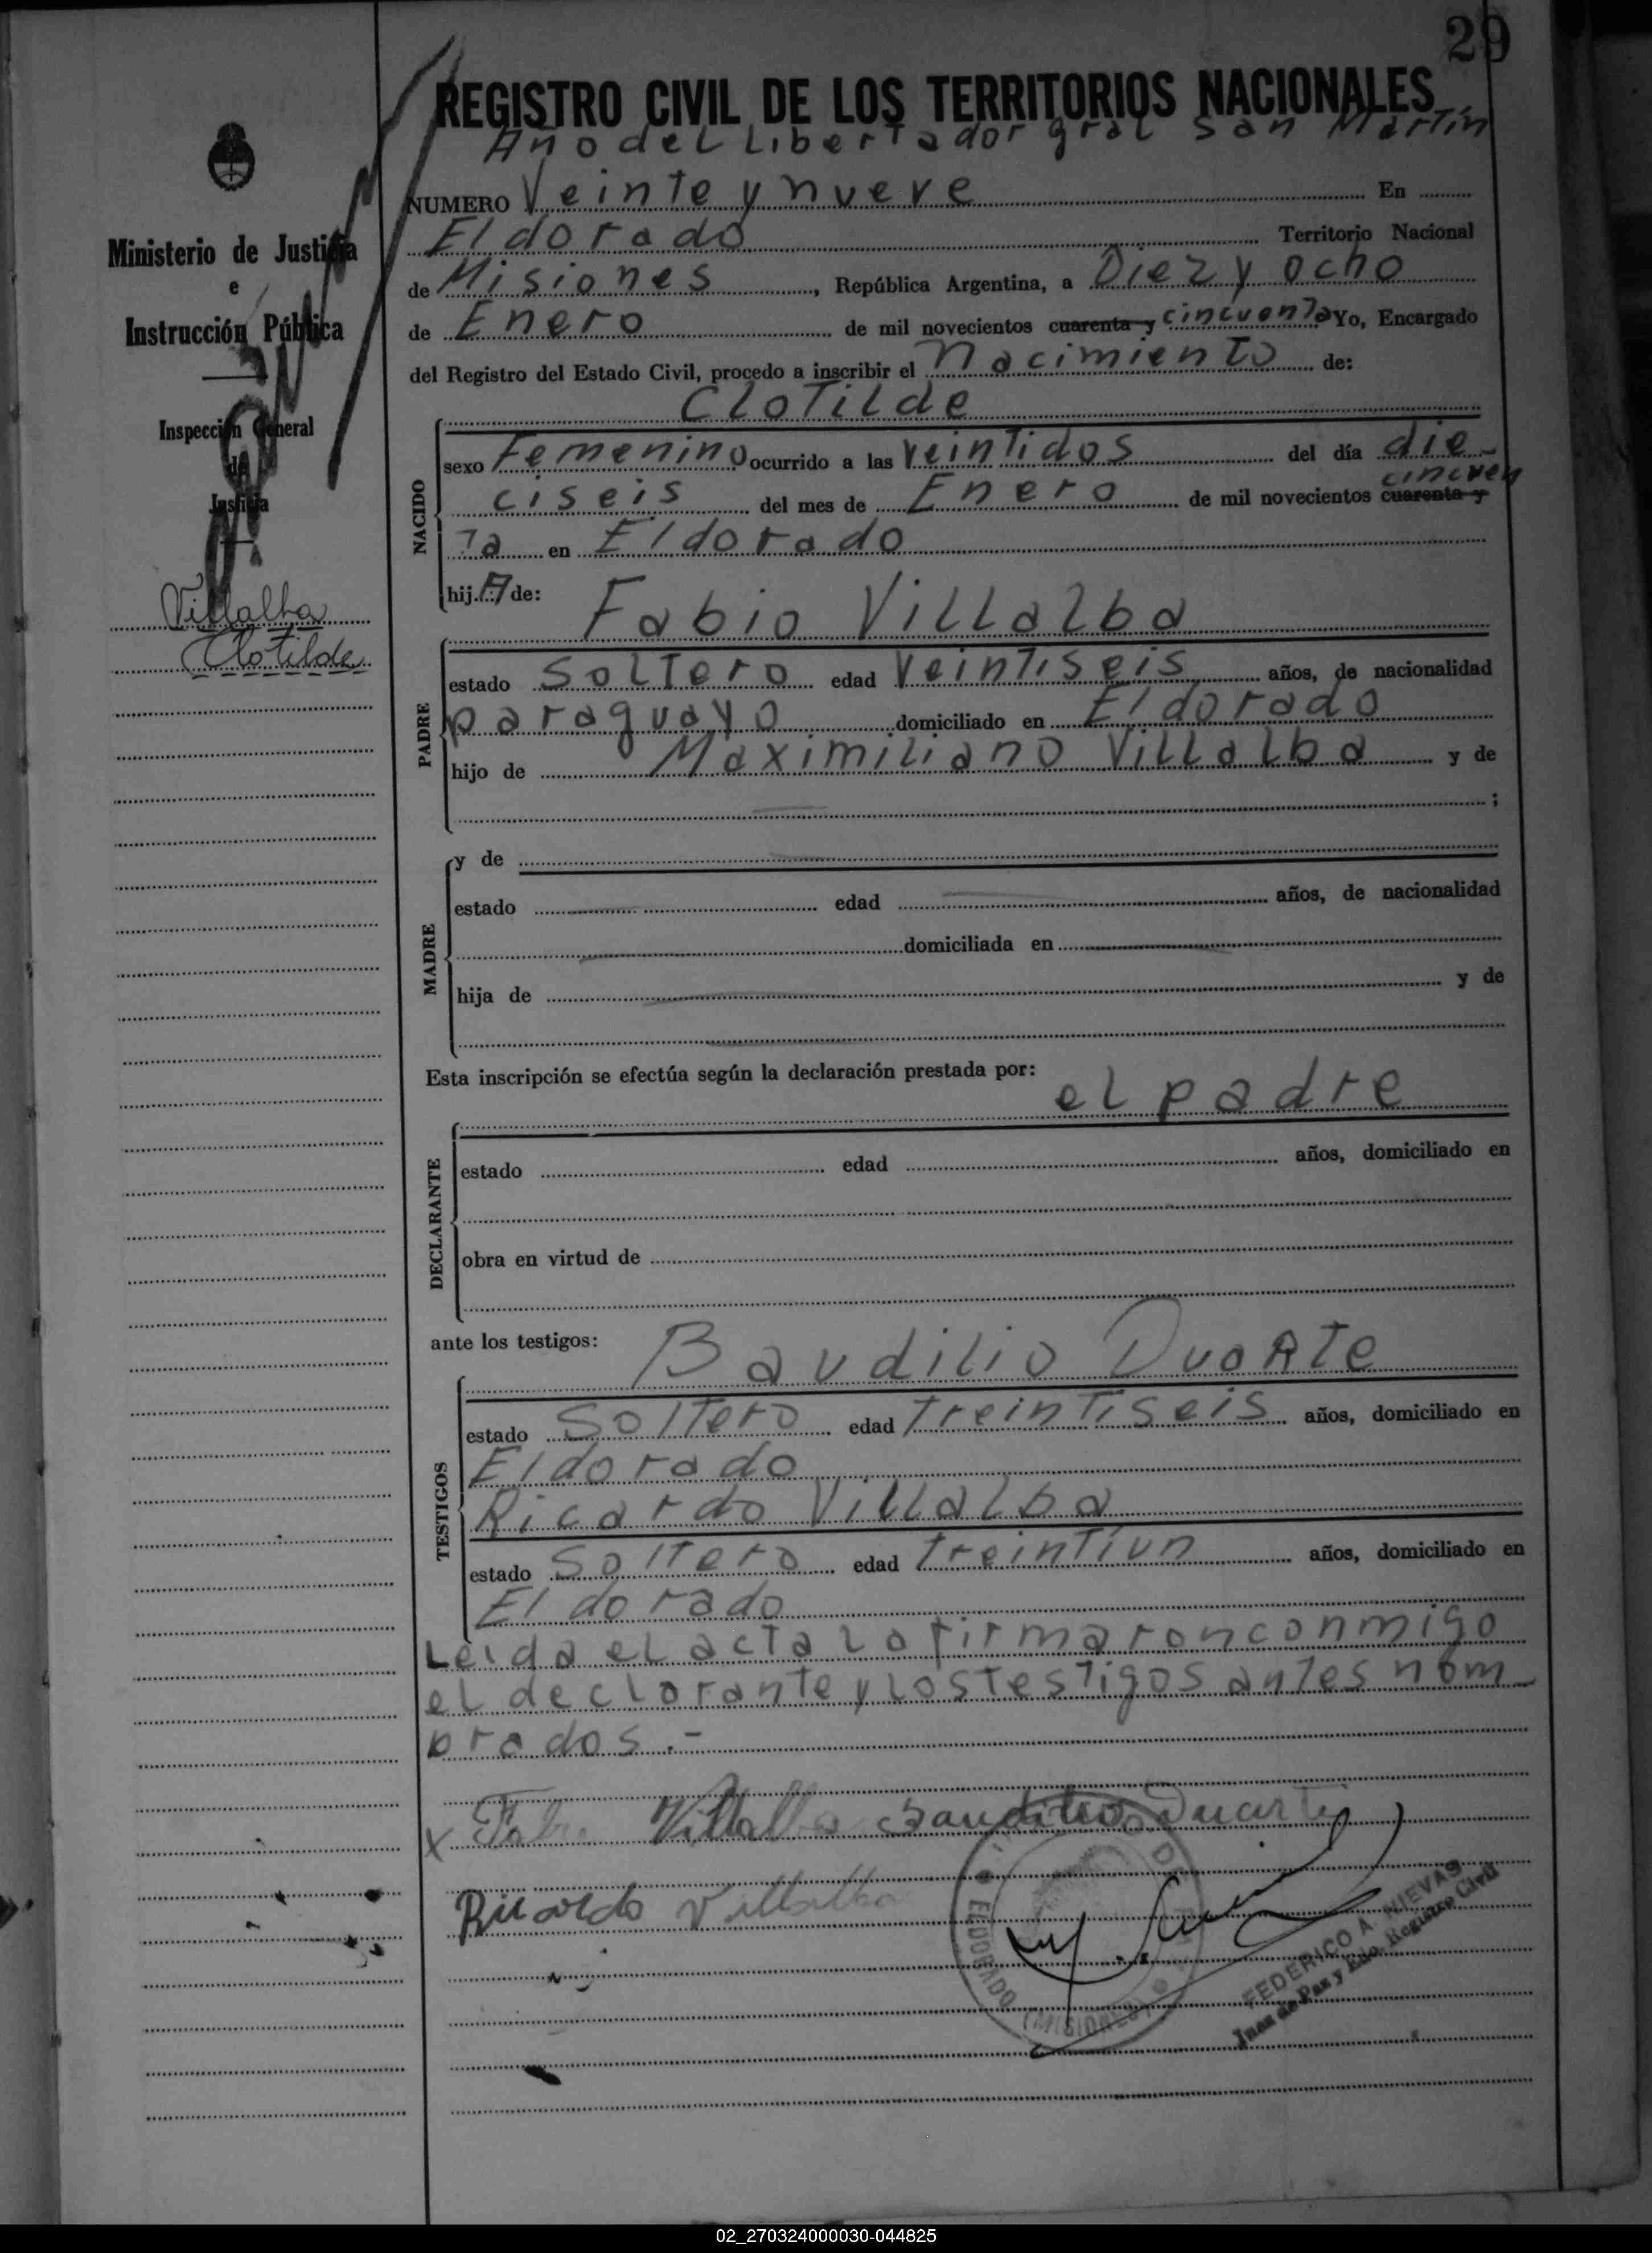 29
REGISTRO CIVIL DE LOS TERRITORIOS NACIONALES
Año del Libertador gral San Martín
NUMERO Veinte y nueve En
Eldorado Territorio Nacional
de Misiones, República Argentina, a Diez y ocho
de Enero de mil novecientos cuarenta y cincuenta Yo, Encargado
del Registro del Estado Civil, procedo a inscribir el nacimiento de:
Clotilde
NACIDO
sexo Femenino ocurrido a las veintidos del día die-
ciseis del mes de Enero de mil novecientos cuarenta y cincuen
ta en Eldorado
hijA de:
Fabio Villalba
PADRE
estado soltero edad veintiseis años, de nacionalidad
paraguayo domiciliado en Eldorado
hijo de Maximiliano Villalba y de
;
MADRE
y de
estado edad años, de nacionalidad
domiciliada en
hija de y de
Esta inscripción se efectúa según la declaración prestada por:
el padre
DECLARANTE
estado edad años, domiciliado en
obra en virtud de
ante los testigos:
Baudilio Duarte
TESTIGOS
estado soltero edad treintiseis años, domiciliado en
Eldorado
Ricardo Villalba
estado soltero edad treintiun años, domiciliado en
Eldorado
Leida el acta la firmaron conmigo
el declarante y los testigos antes nom
brados.-
x Fabio Villalba Baudilio Duarte
Ricardo Villalba
ELDORADO (MISIONES)
FEDERICO A. NIEVAS
Juez de Paz y Edo. Registro Civil
Ministerio de Justicia
e
Instrucción Pública
Inspección General
de
Justicia
Villalba
Clotilde
02_270324000030-044825